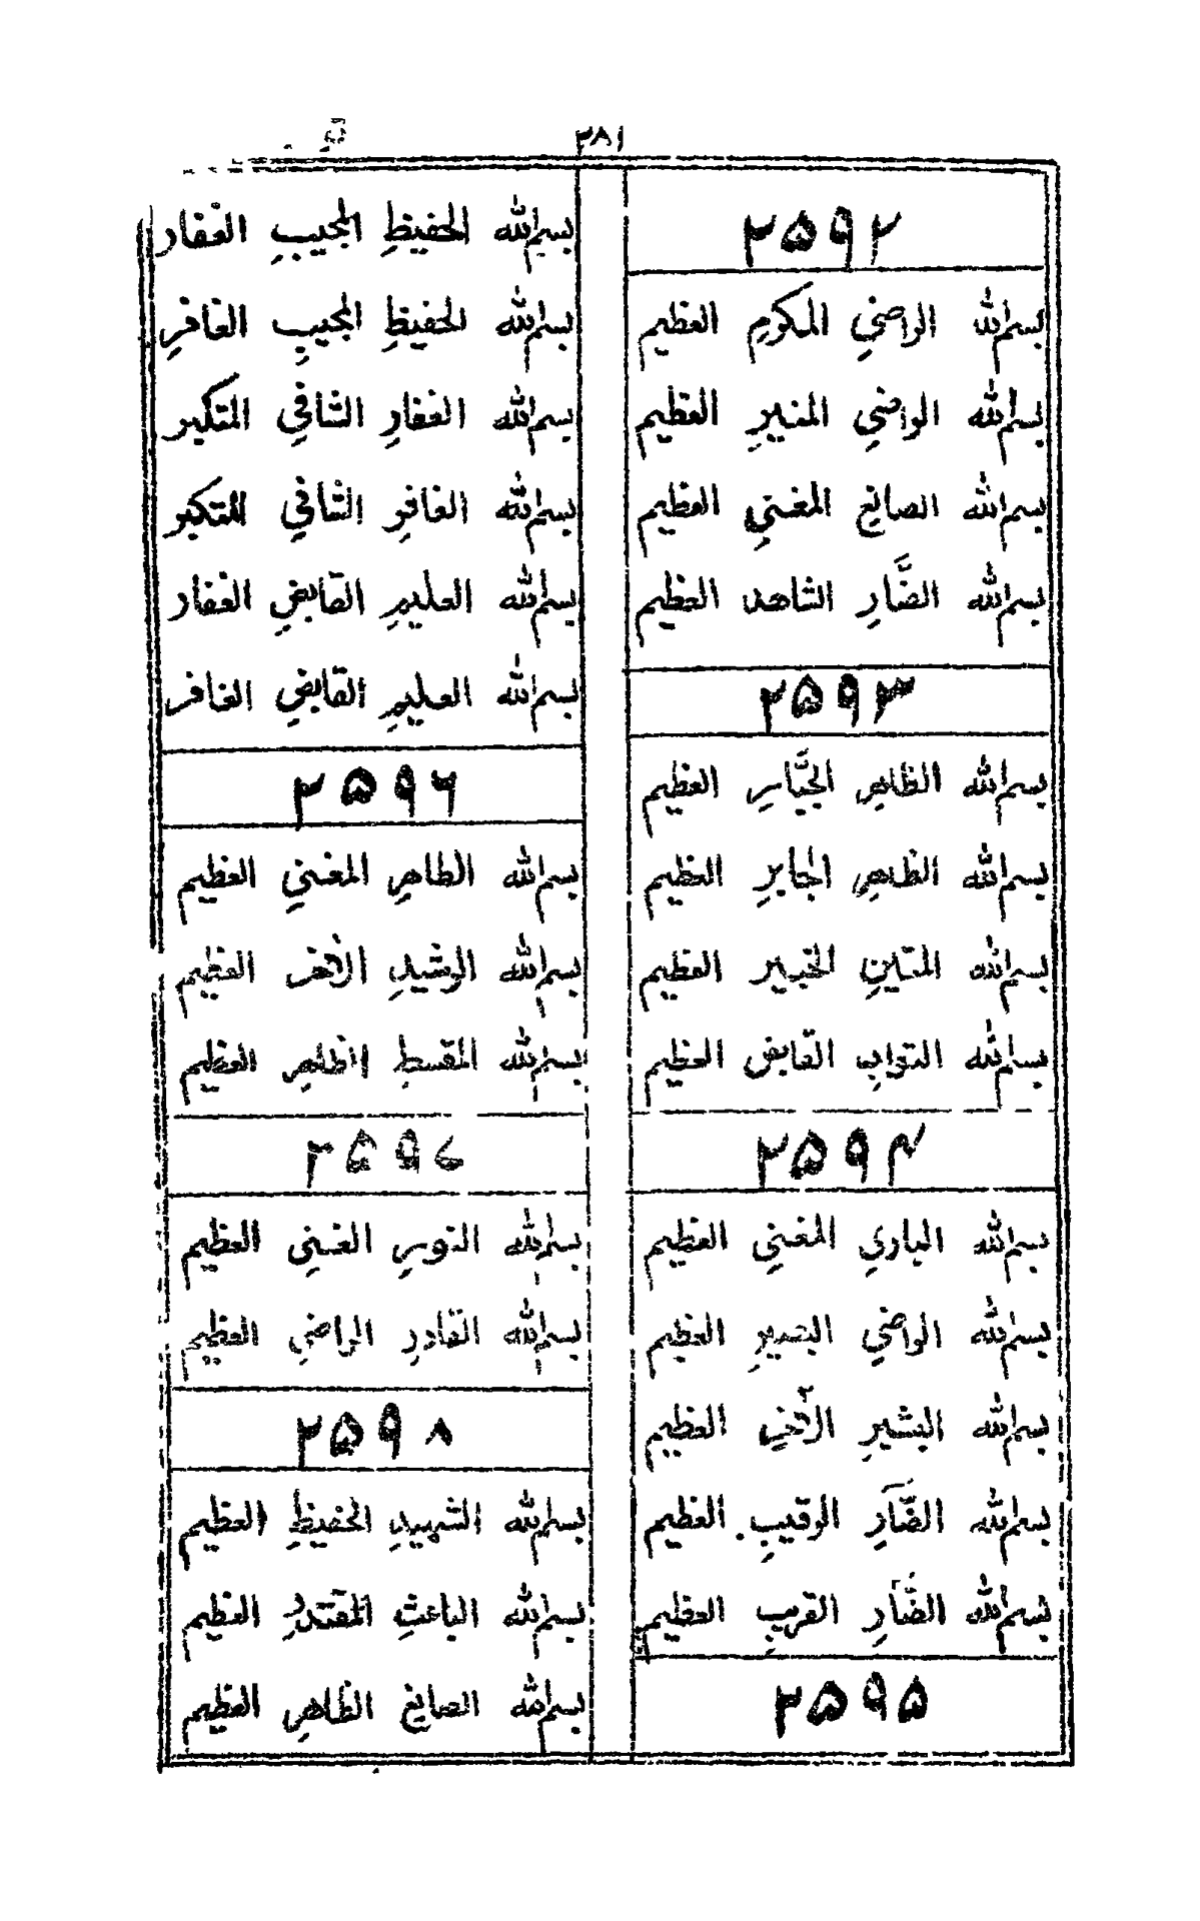 ٢٨١
٢٥٩٢
بسم الله الراضيِ المكرمِ العظيم
بسم الله الراضيِ المنيرِ العظيم
بسم الله الصانعِ المغنيِ العظيم
بسم الله الضَّارِ الشاهد العظيم
٢٥٩٣
بسم الله الظاهرِ الجبَّارِ العظيم
بسم الله الظاهرِ الجابرِ العظيم
بسم الله المتينِ الخبير العظيم
بسم الله التوابِ القابض العظيم
٢٥٩۴
بسم الله الباريِ المغنيِ العظيم
بسم الله الراضيِ البصيرِ العظيم
بسم الله البشيرِ الآخرِ العظيم
بسم الله الضَّارِ الرقيبِ العظيم
بسم الله الضَّارِ القريبِ العظيم
٢٥٩٥
بسم الله الحفيظِ المجيبِ الغفار
بسم الله الحفيظِ المجيبِ الغافرِ
بسم الله الغفارِ الشافيِ المتكبر
بسم الله الغافرِ الشافيِ المتكبر
بسم الله العليمِ القابضِ الغفار
بسم الله العليمِ القابضِ الغافر
٢٥٩۶
بسم الله الطاهرِ المغنيِ العظيم
بسم الله الرشيدِ الآخر العظيم
بسم الله المقسطِ الظاهرِ العظيم
٢٥٩٧
بسم الله النورِ الغنيِ العظيم
بسم الله القادرِ الراضيِ العظيم
٢٥٩٨
بسم الله الشهيدِ الحفيظِ العظيم
بسم الله الباعثِ المقتدرِ العظيم
بسم الله الصانعِ الظاهرِ العظيم